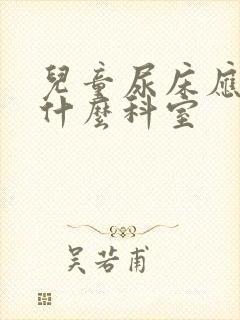 兒童尿床應
什麼科室
吳若甫